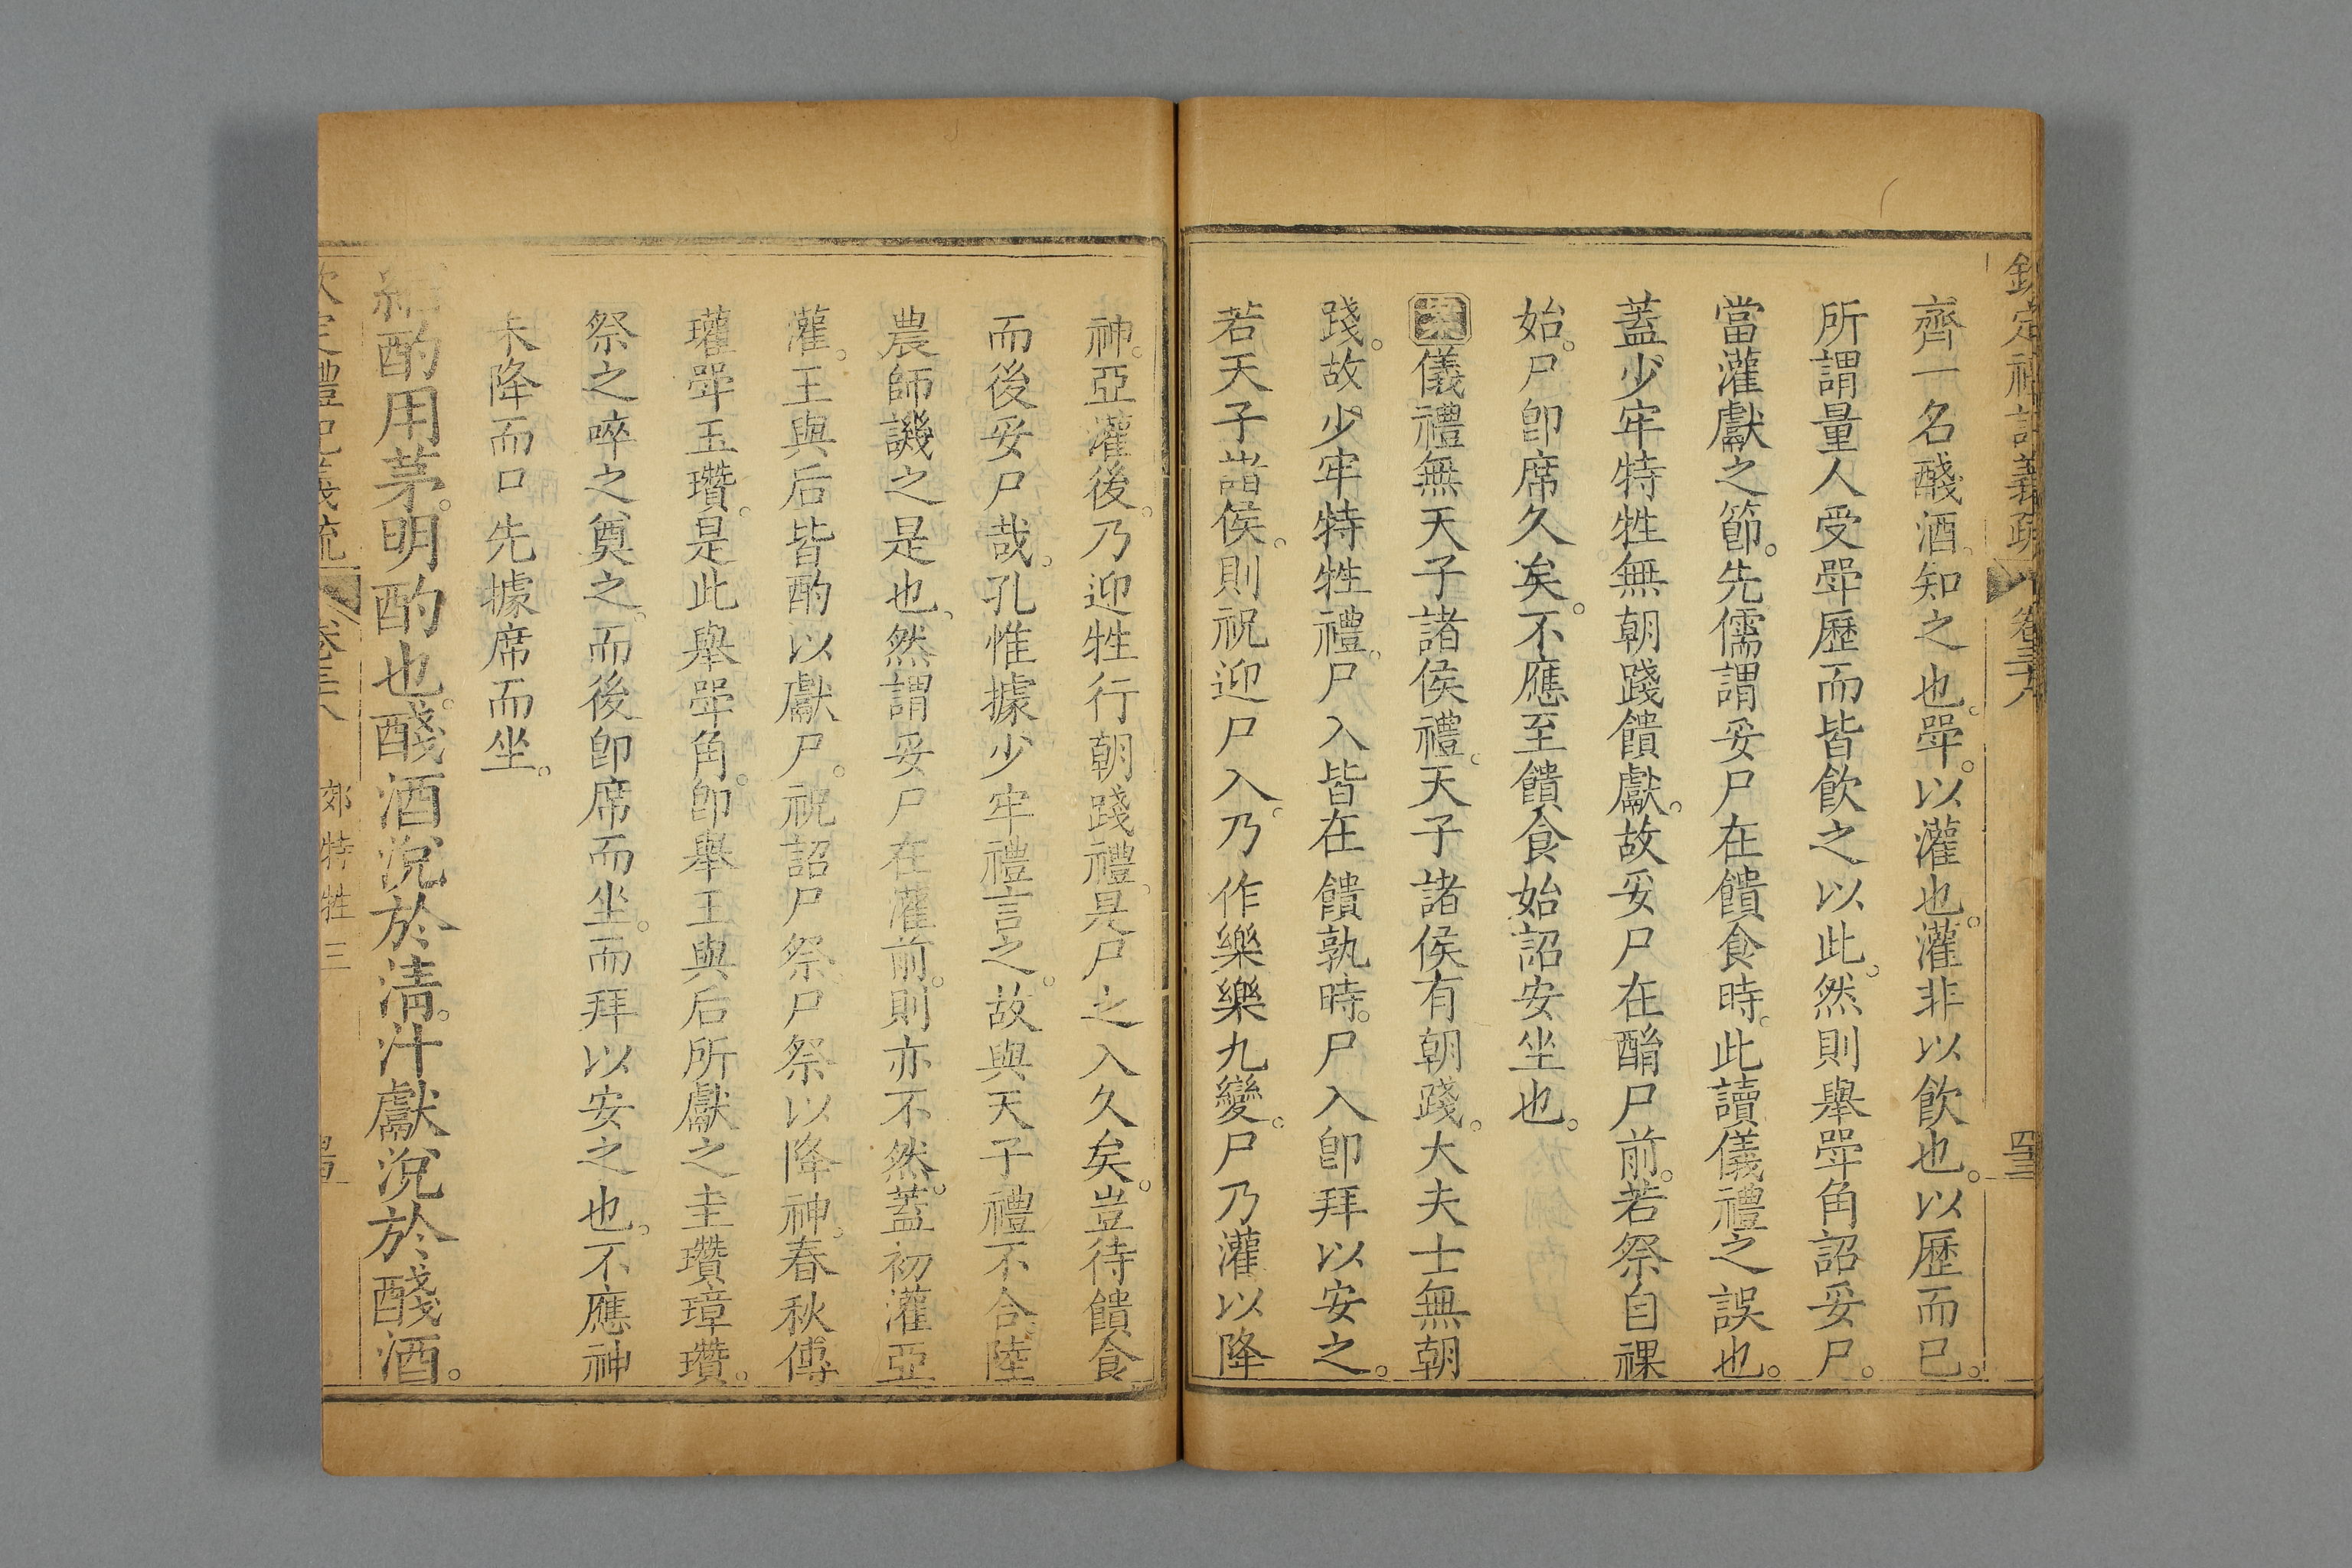 欽定禮記義疏 卷三十六 四三
齊一名醆酒。知之也。斝。以灌也。灌非以飲也。以歷而已。
所謂量人受斝歷而皆飲之以此。然則舉斝角詔妥尸。
當灌獻之節。先儒謂妥尸在饋食時。此讀儀禮之誤也。
蓋少牢特牲無朝踐饋獻。故妥尸在酳尸前。若祭自祼
始。尸卽席久矣。不應至饋食始詔安坐也。
案儀禮無天子諸侯禮。天子諸侯有朝踐。大夫士無朝
踐。故少牢特牲禮。尸入皆在饋孰時。尸入卽拜以安之。
若天子諸侯。則祝迎尸入。乃作樂樂九變。尸乃灌以降
神。亞灌後。乃迎牲行朝踐禮。是尸之入久矣。豈待饋食
而後妥尸哉。孔惟據少牢禮言之。故與天子禮不合。陸
農師譏之是也。然謂妥尸在灌前。則亦不然。蓋初灌亞
灌。王與后皆酌以獻尸。祝詔尸祭尸祭以降神。春秋傳
瓘斝玉瓚。是此舉斝角。卽舉王與后所獻之圭瓚璋瓚。
祭之啐之奠之。而後卽席而坐。而拜以安之也。不應神
未降而口先據席而坐。
縮酌用茅。明酌也。醆酒涚於淸。汁獻涚於醆酒。
欽定禮記義疏 卷三十六 郊特牲三